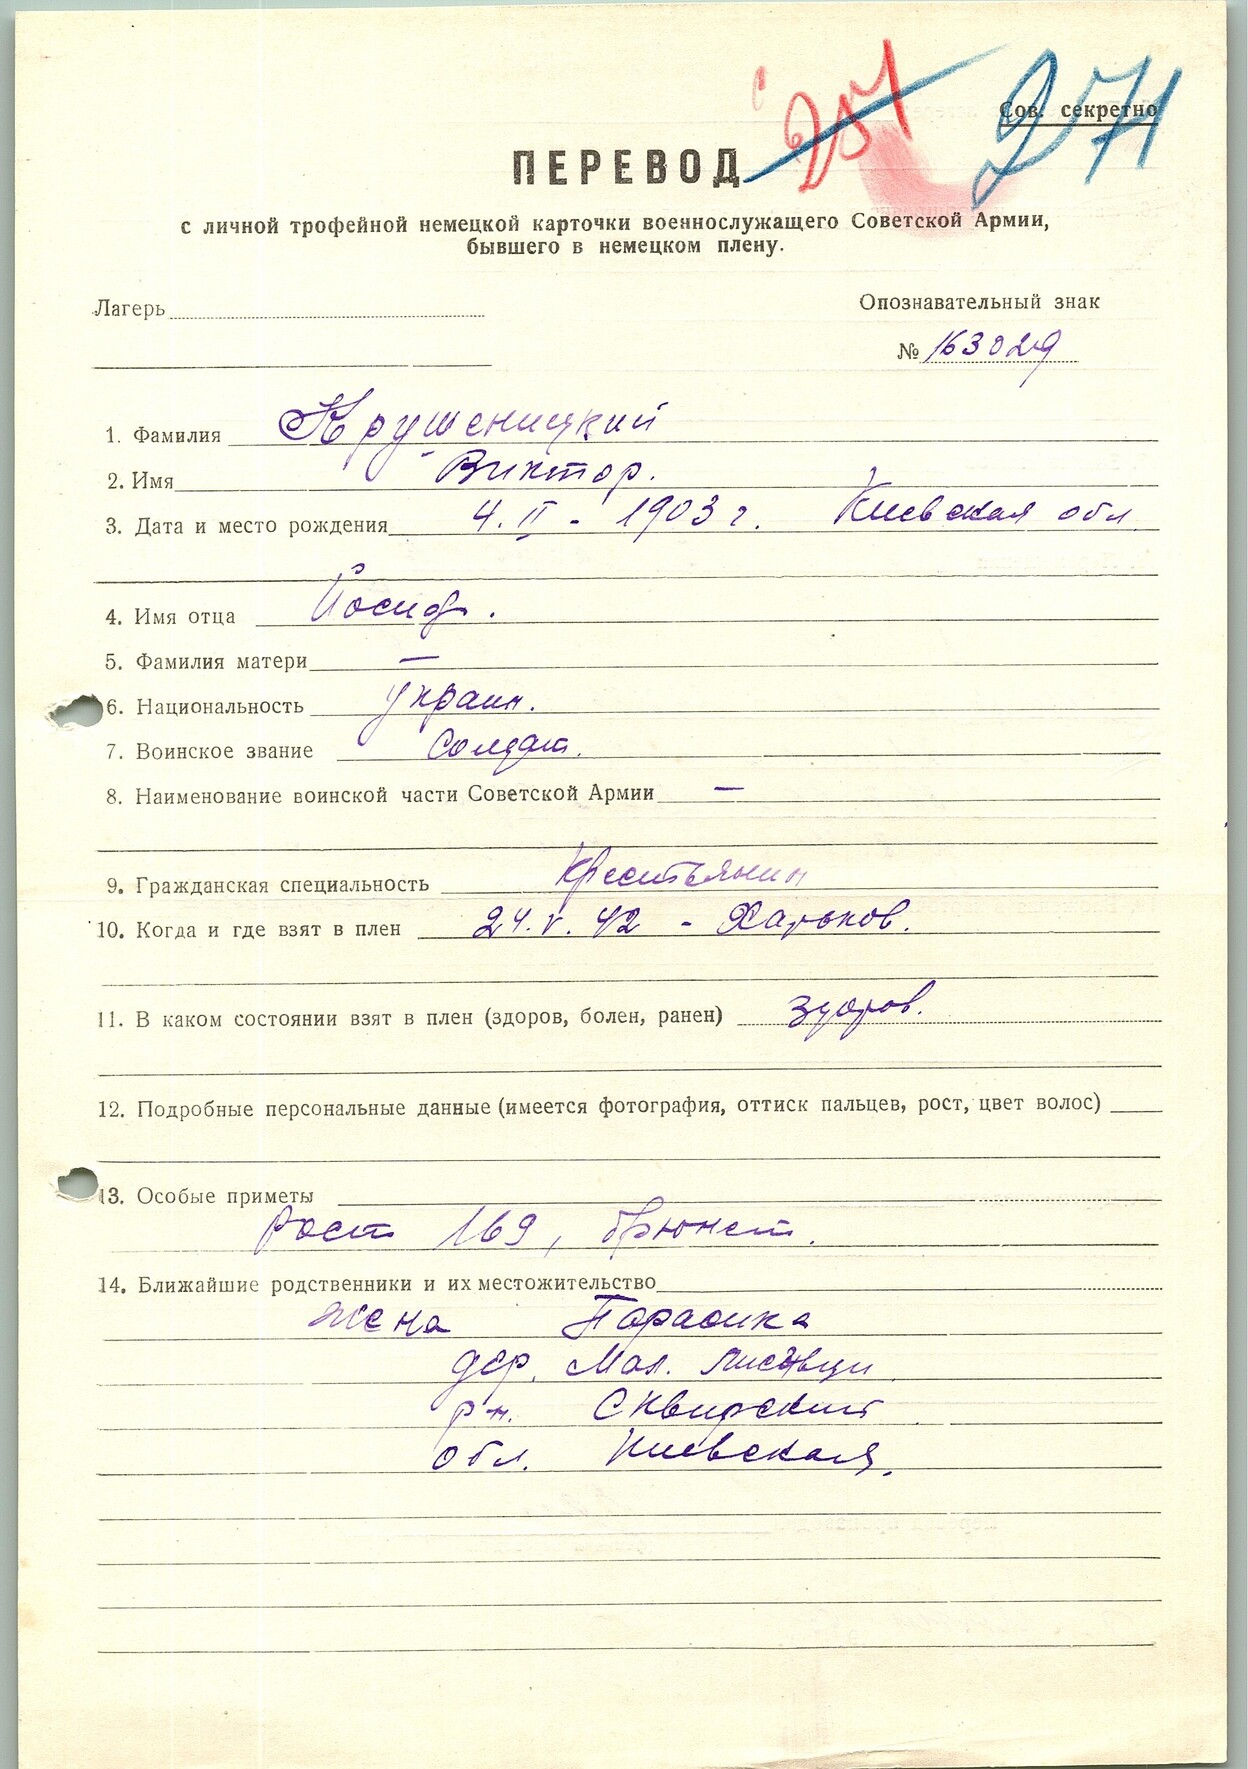 271
Сов. секретно
ПЕРЕВОД
с личной трофейной немецкой карточки военнослужащего Советской Армии,
бывшего в немецком плену.
Лагерь
Опознавательный знак
№ 163029
1. Фамилия Крушеницкий
2. Имя Виктор.
3. Дата и место рождения 4. II - 1903 г. Киевская обл.
4. Имя отца Йосиф.
5. Фамилия матери —
6. Национальность украин.
7. Воинское звание Солдат.
8. Наименование воинской части Советской Армии —
9. Гражданская специальность Крестьянин
10. Когда и где взят в плен 24. V. 42 - Харьков.
11. В каком состоянии взят в плен (здоров, болен, ранен) здоров.
12. Подробные персональные данные (имеется фотография, оттиск пальцев, рост, цвет волос)
13. Особые приметы
Рост 169, брюнет.
14. Ближайшие родственники и их местожительство
Жена Параоика
дер. Мал.
р-н. Сквирский
обл. Киевская.